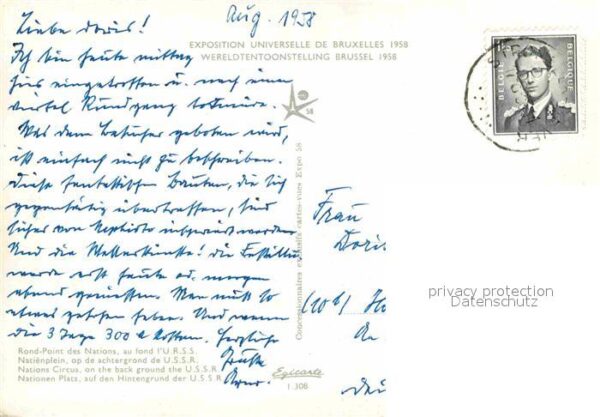 Aug. 1958
Liebe Doris!
EXPOSITION UNIVERSELLE DE BRUXELLES 1958
WERELDTENTOONSTELLING BRUSSEL 1958
Ich bin heute mittag
hier eingetroffen u. nach einem
Rundgang todmüde.
Was dem Besucher geboten wird,
ist einfach nicht zu beschreiben.
Diese fantastischen Bauten, die sich
gegenseitig übertreffen, sind
sicher von inspiriert worden.
Und die Wasserkünste! die
werde erst heute od. morgen
abend genießen. Man muß so
etwas gesehen haben. Und wenn
die 3 Tage 300 kosten. Herzliche
Grüße
58
BELGIE BELGIQUE
Concessionnaires exclusifs cartes-vues Expo 58
Frau
Doris
privacy protection
Datenschutz
Rond-Point des Nations, au fond l'U.R.S.S.
Natiënplein, op de achtergrond de U.S.S.R.
Nations Circus, on the back ground the U.S.S.R.
Nationen Platz, auf den Hintergrund der U.S.S.R.
Egicarte
1.308